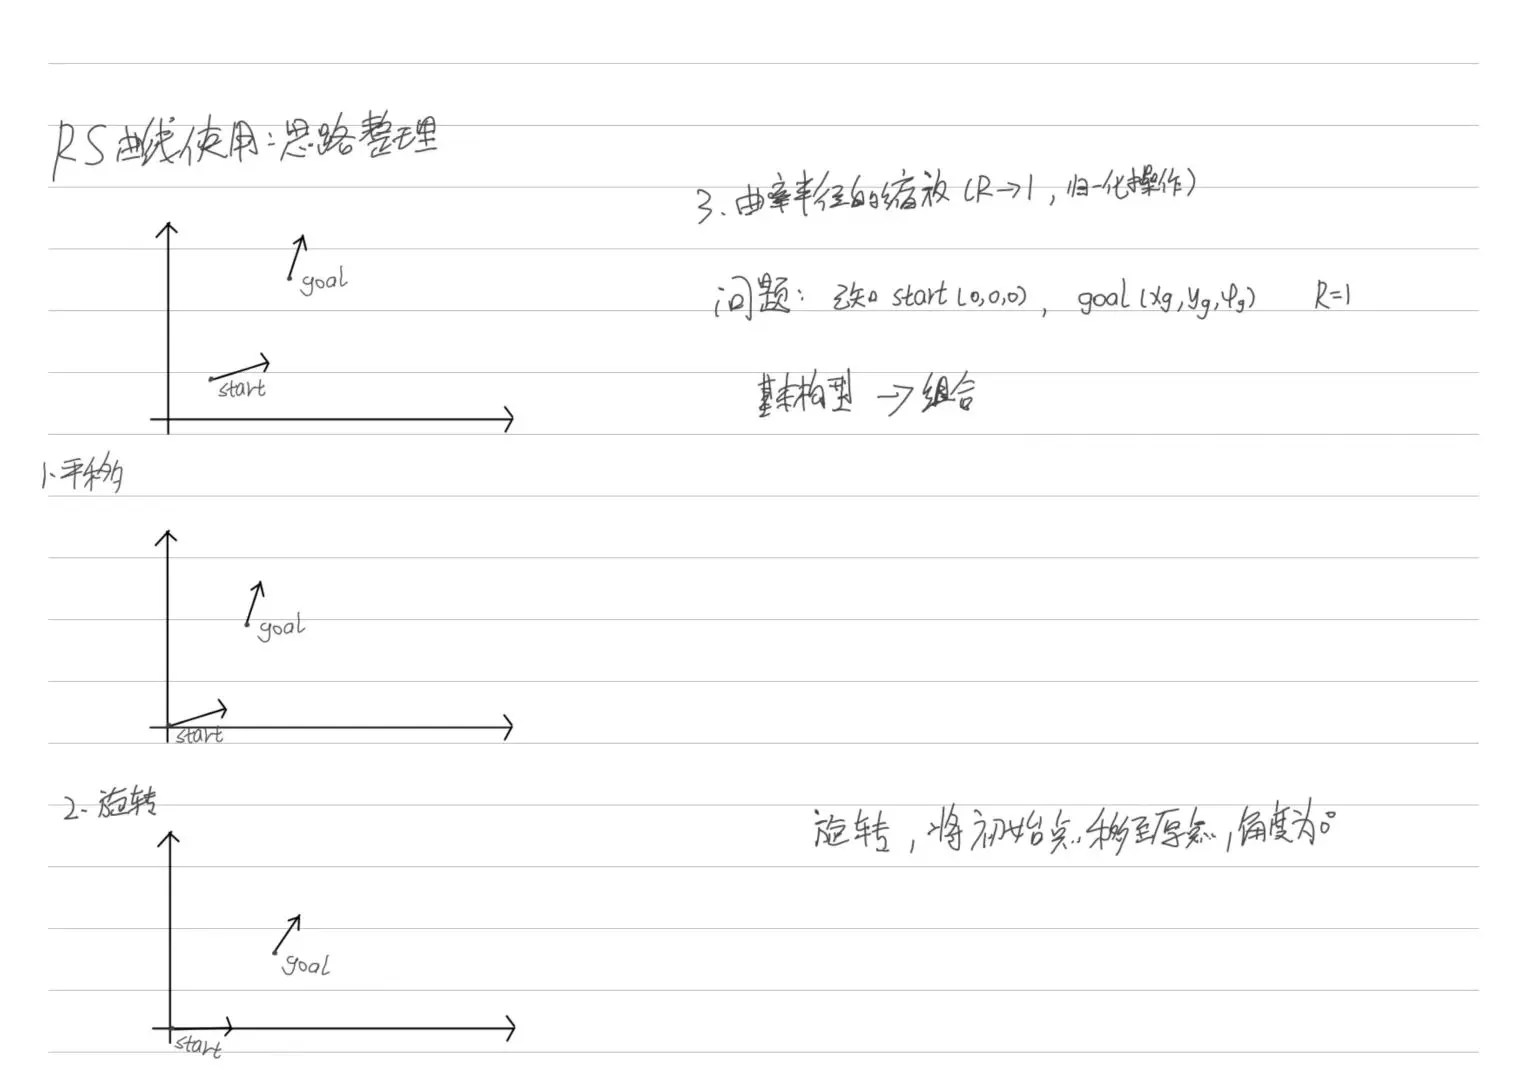 RS曲线使用:思路整理
goal
start
1.平移
goal
start
2.旋转
goal
start
3.曲率半径的缩放(R→1,归一化操作)
问题: 已知 start(0,0,0), goal(xg,yg,φg) R=1
基本构型 →组合
旋转,将初始点移至原点,角度为0°